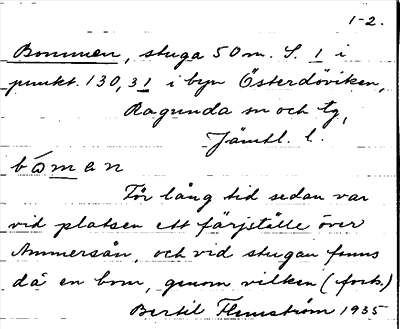 1-2.
Bommen, stuga 50 m. S. 1 i
punkt. 130,31 i byn Österdöviken,
Ragunda sn och tg,
Jämtl. l.
bòmen
För lång tid sedan var
vid platsen ett färjställe över
Ammerån, och vid stugan fanns
då en bom, genom vilken (forts.)
Bertil Flemström 1935